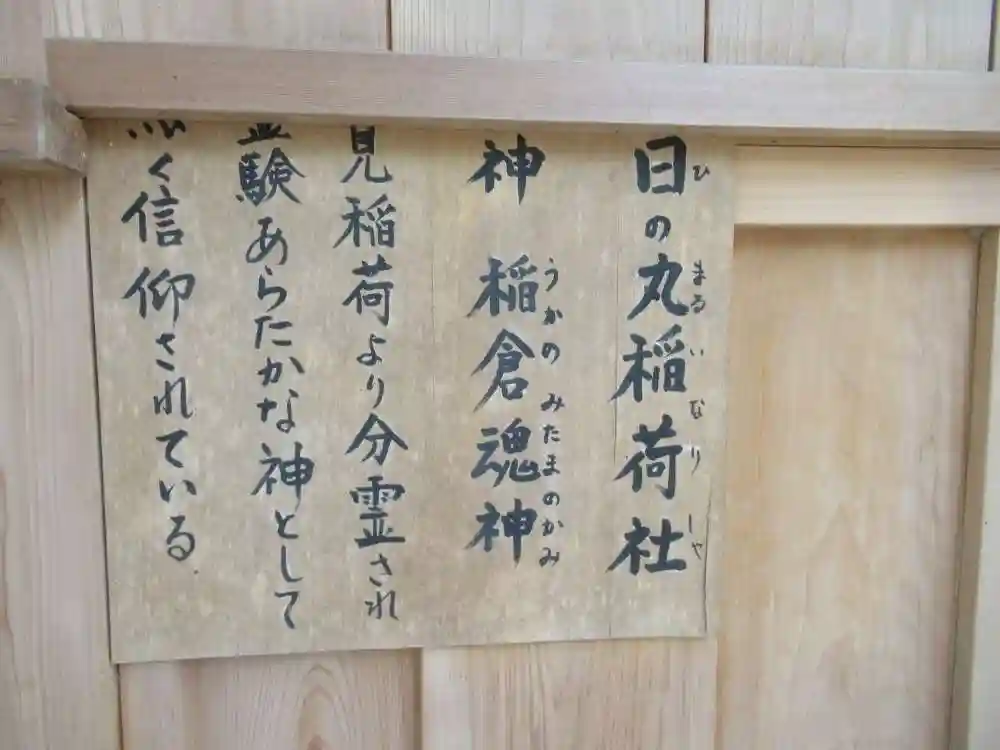 日の丸稲荷社
ひ まるいなりしゃ
神 稲倉魂神
うかのみたまのかみ
見稲荷より分霊され
験あらたかな神として
く信仰されている